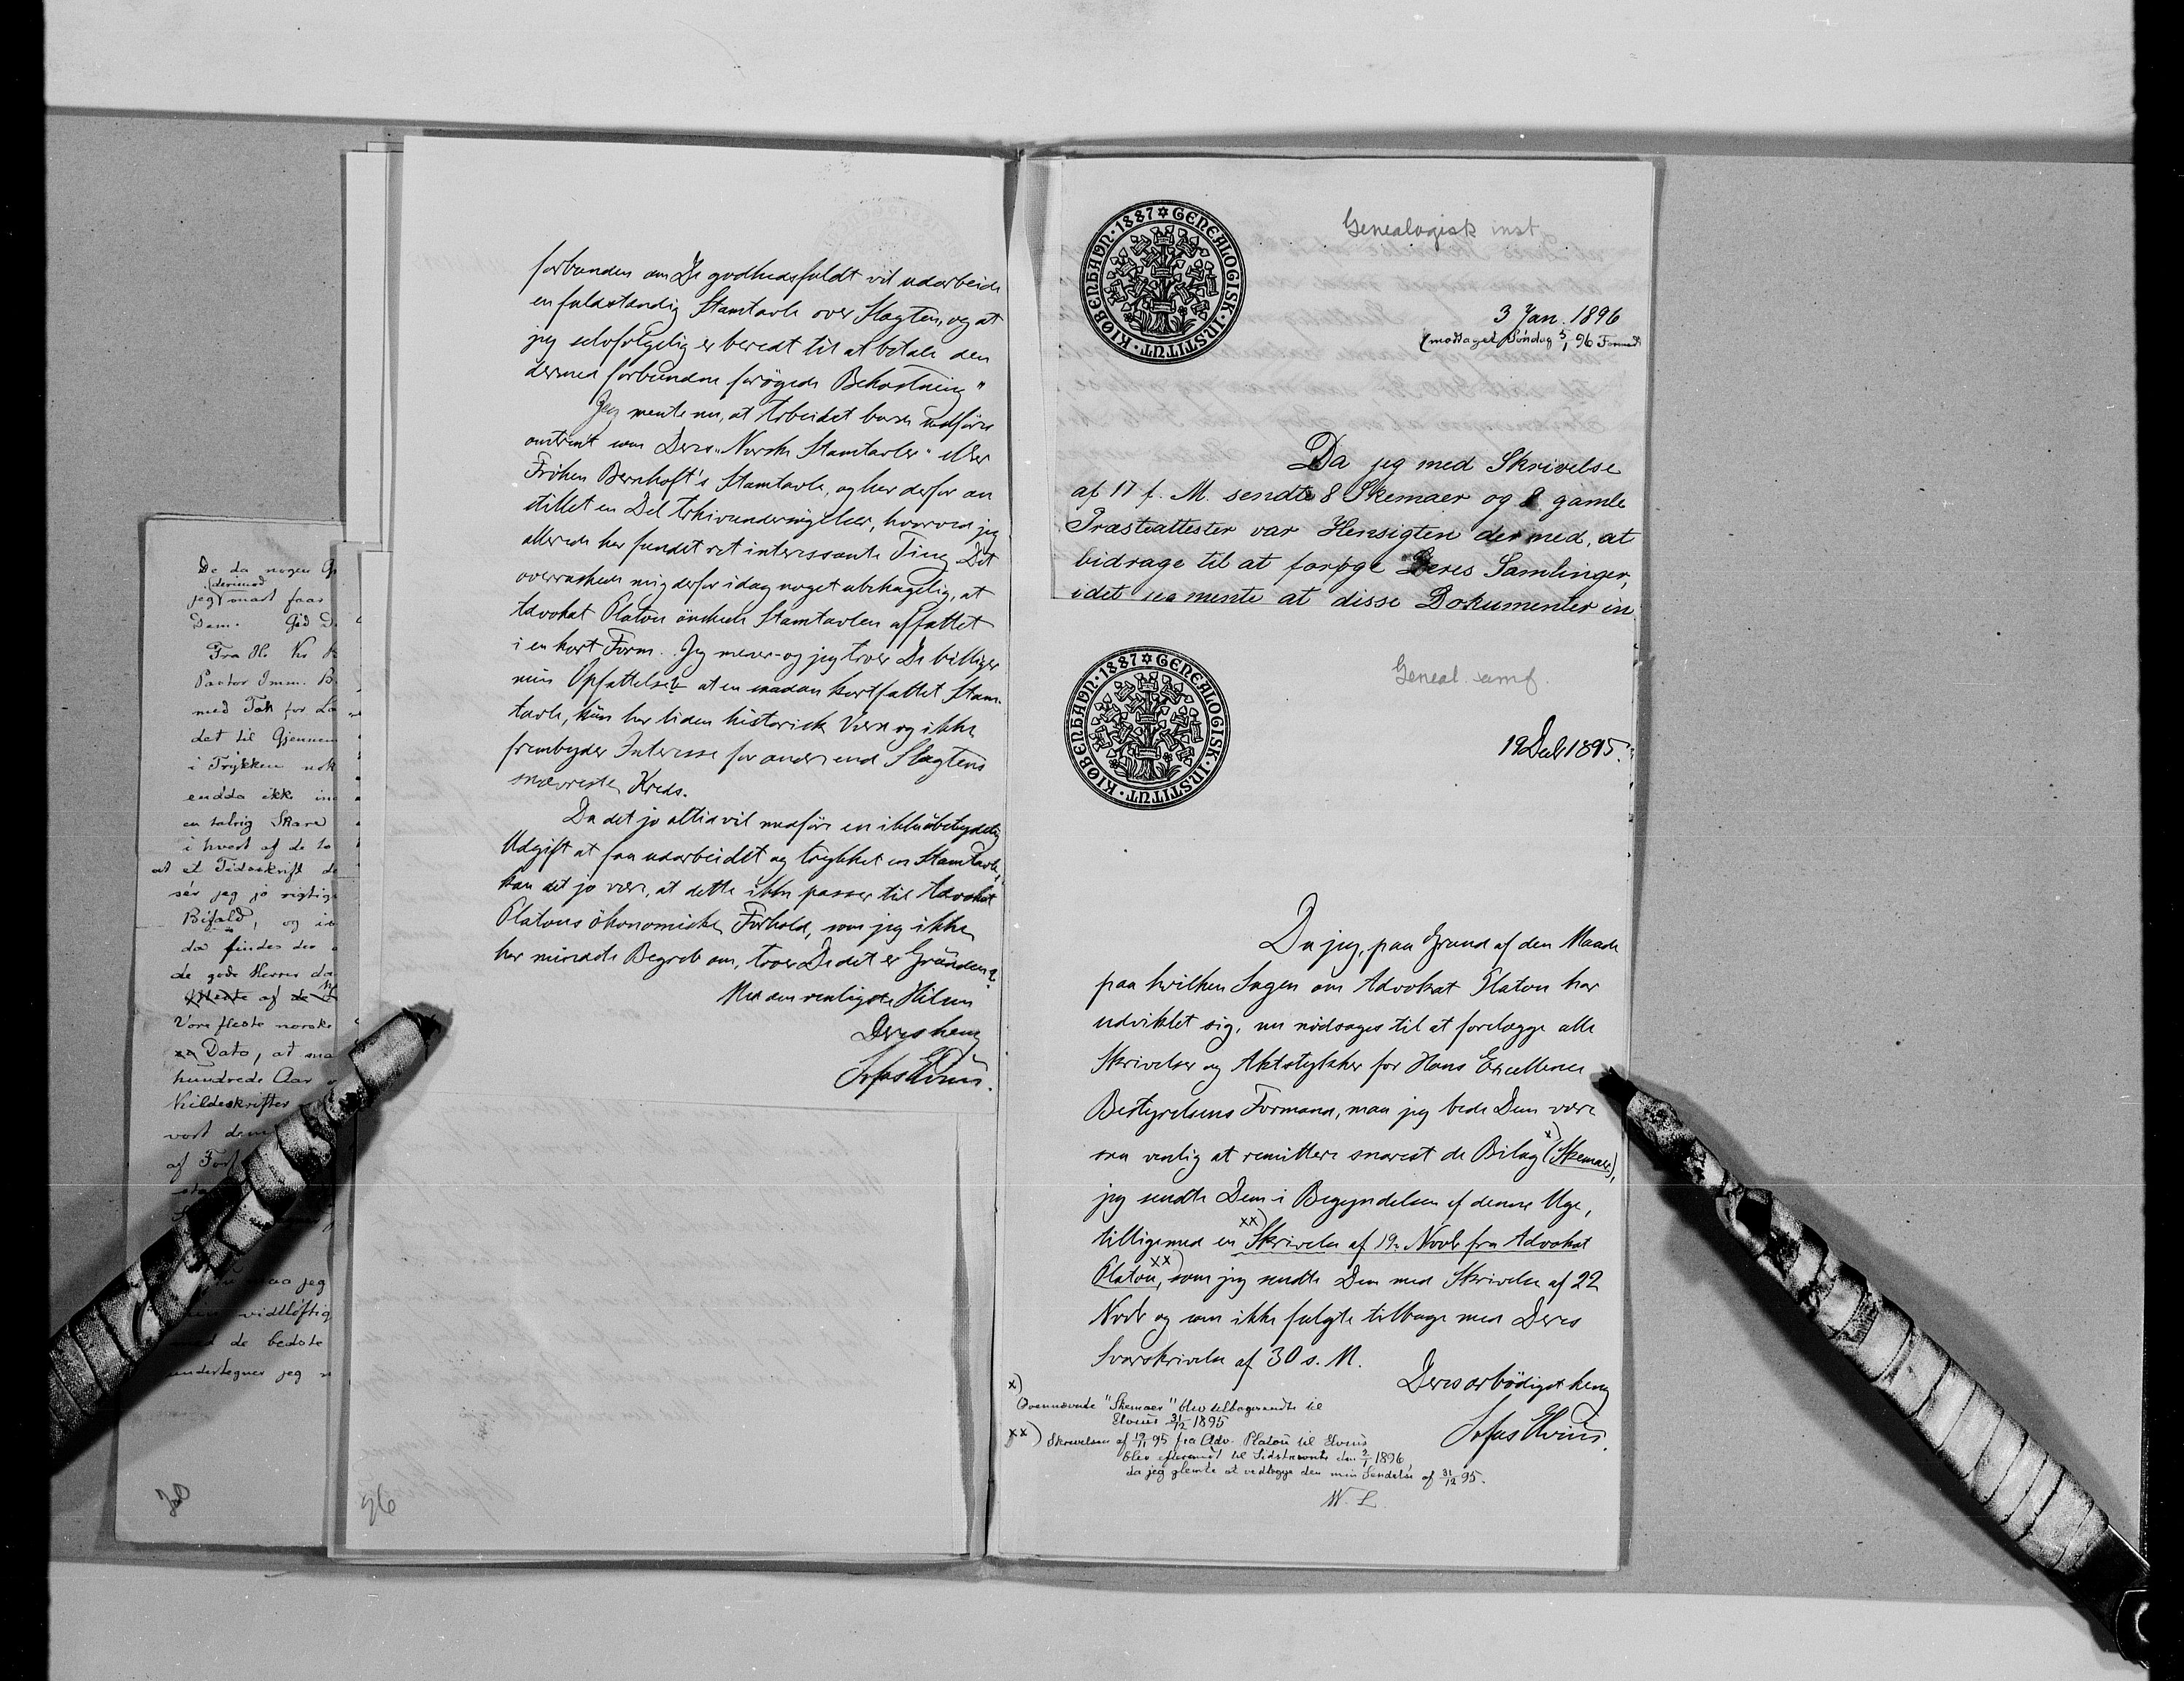 De da nogen
derimod
jeg snart faar
Dem. Gid D
Fra Hr
Pastor Imm. B.
med Tak for
det til Gjennem
i Trykken
endda ikke
en talrig Skare
i hvert af de to
at et Tidsskrift de
sér jeg jo rigtig
Bifald, og
da findes der
de gode Herrer da
af
Vore fleste norske
Dato, at
hundrede Aar
Kildeskrifter
vort dem
af
jeg
vidtløftig
de bedste
undertegner jeg
forbunden om De godhedsfuldt vil udarbeide
en fuldstændig Stamtavle over Slægten, og at
jeg selvfølgelig er beredt til at betale den
dermed forbundne forøgede Bekostning"
Jeg mente nu, at Arbeidet burde udføres
omtrent som Deres "Norske Stamtavler" eller
Frøken Bernhoft's Stamtavle, og har derfor an
stillet en Del Arkivundersøgelser, hvorved jeg
allerede har fundet ret interessante Ting. Det
overraskede mig derfor idag noget ubehagelig, at
Advokat Platou ønskede Stamtavlen affattet
i en kort Form. Jeg mener - og jeg troer De billiger
min Opfattelse - at en saadan kortfattet Stam-
tavle, kun har liden historisk Værd og ikke
frembyder Interesse for andre end Slægtens
snævreste Kreds.
Da det jo altid vil medføre en ikke ubetydelig
Udgift at faa udarbeidet og trykket en Stamtavle,
kan det jo være, at dette ikke passer til Advokat
Platous økonomiske Forhold, som jeg ikke
har mindste Begreb om, troer De det er Grunden?
Med den venligste Hilsen
Deres heng
Sofus Elvius.
26
KIØBENHAVN · 1887 ✡ GENEALOGISK · INSTITUT ·
Genealogisk inst
3 Jan. 1896
(modtaget Søndag 5/1 96 Formd)
Da jeg med Skrivelse
af 17 f. M. sendte 8 Skemaer og 2 gamle
Præsteattester var Hensigten dermed, at
bidrage til at forøge Deres Samlinger,
idet jeg mente at disse Dokumenter in
KIØBENHAVN · 1887 ✡ GENEALOGISK · INSTITUT ·
Geneal. samf.
19 Decb 1895.
Da jeg, paa Grund af den Maade
paa hvilken Sagen om Advokat Platou har
udviklet sig, nu nødsages til at forelægge alle
Skrivelser og Aktstykker for Hans Excellence
Bestyrelsens Formand, maa jeg bede Dem være
saa venlig at remittere snarest de Bilag x) (Skemaer),
jeg sendte Dem i Begyndelsen af denne Uge,
tilligemed en xx) Skrivelse af 19. Novb fra Advokat
Platou, xx) som jeg sendte Dem med Skrivelse af 22
Novb og som ikke fulgte tilbage med Deres
Svarskrivelse af 30 s. M.
Deres ærbødigst heng
Sofus Elvius.
x)
Ovennævnte "Skemaer" blev tilbagesendte til
Elvius 31/12 1895
xx) Skrivelsen af 19/11 95 fra Adv. Platou til Elvius
blev eftersendt til Sidstnævnte den 2/1 1896
da jeg glemte at vedlægge den min Sendelse af 31/12 95.
W. L.